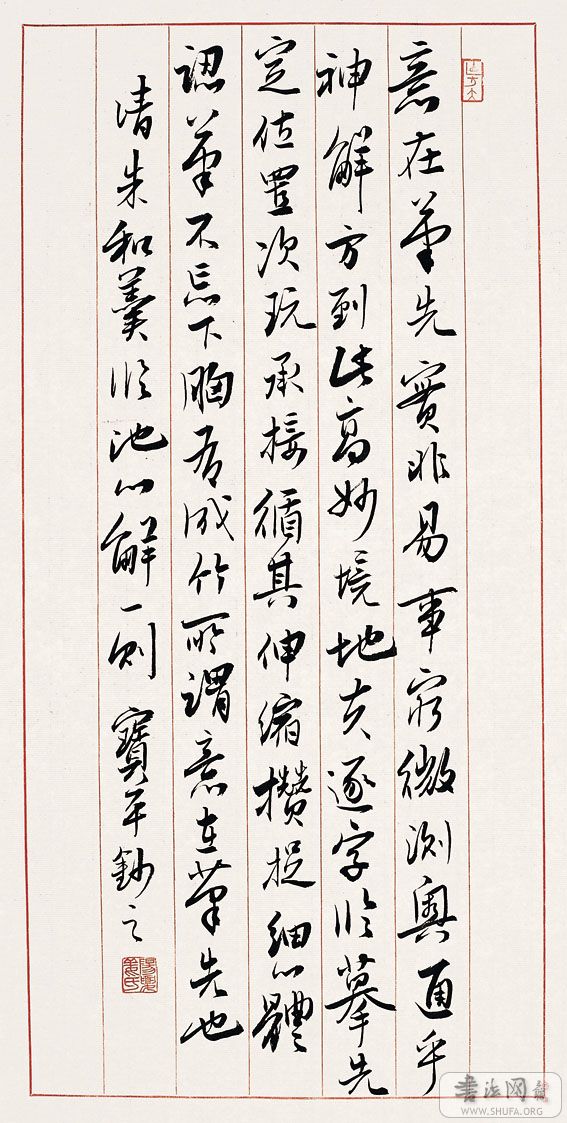 意在筆先實非易事窮微測奧通乎
神解方到此高妙境地夫逐字臨摹先
定位置次玩承接循其伸縮攢捉細心體
認筆不忘下胸有成竹所謂意在筆先也
清朱和羹臨池心解一則 寶平鈔之
書法网
WWW.SHUFA.ORG